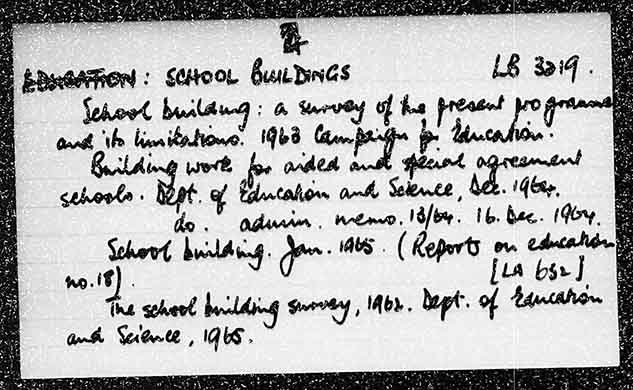 EDUCATION: SCHOOL BUILDINGS LB 3219.
School building: a survey of the present programme
and its limitations. 1963 Campaign for Education.
Building work for aided and special agreement
schools. Dept. of Education and Science, Dec. 1964.
do. admin. memo. 13/64. 16. Dec. 1964.
School building. Jan. 1965. (Reports on education
no. 18) [LA 632]
The school building survey, 1962. Dept. of Education
and Science, 1965.